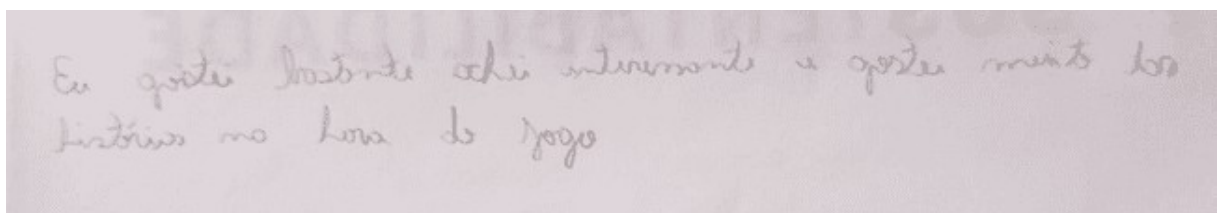 Eu gostei bastante achei interessante e gostei muito das
histórias na hora do jogo